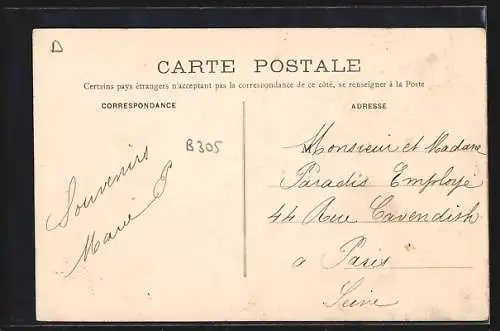 D
CARTE POSTALE
Certains pays étrangers n'acceptant pas la correspondance de ce côté, se renseigner à la Poste
CORRESPONDANCE
B305
Souvenirs
Marie P
ADRESSE
Monsieur et Madame
Paradis Employé
44 Rue Cavendish
a Paris
Seine